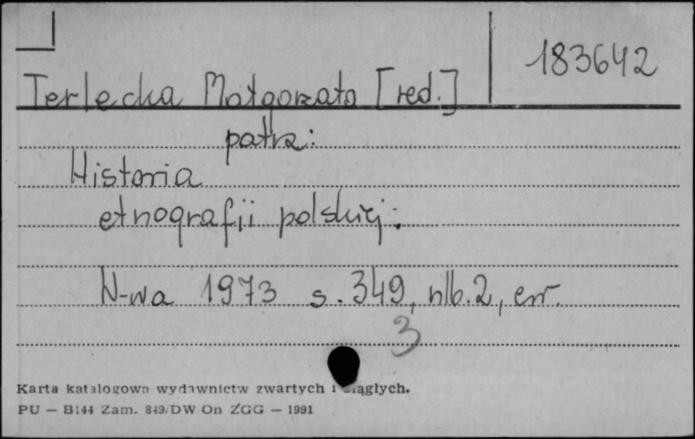 183642
Terlecka Małgorzata [red.]
patrz:
Historia
etnografii polskiej.
W-wa 1973 s. 349, nlb. 2, err.
3
Karta katalogowa wydawnictw zwartych i ciągłych.
PU — B144 Zam. 849/DW On ZGG — 1991